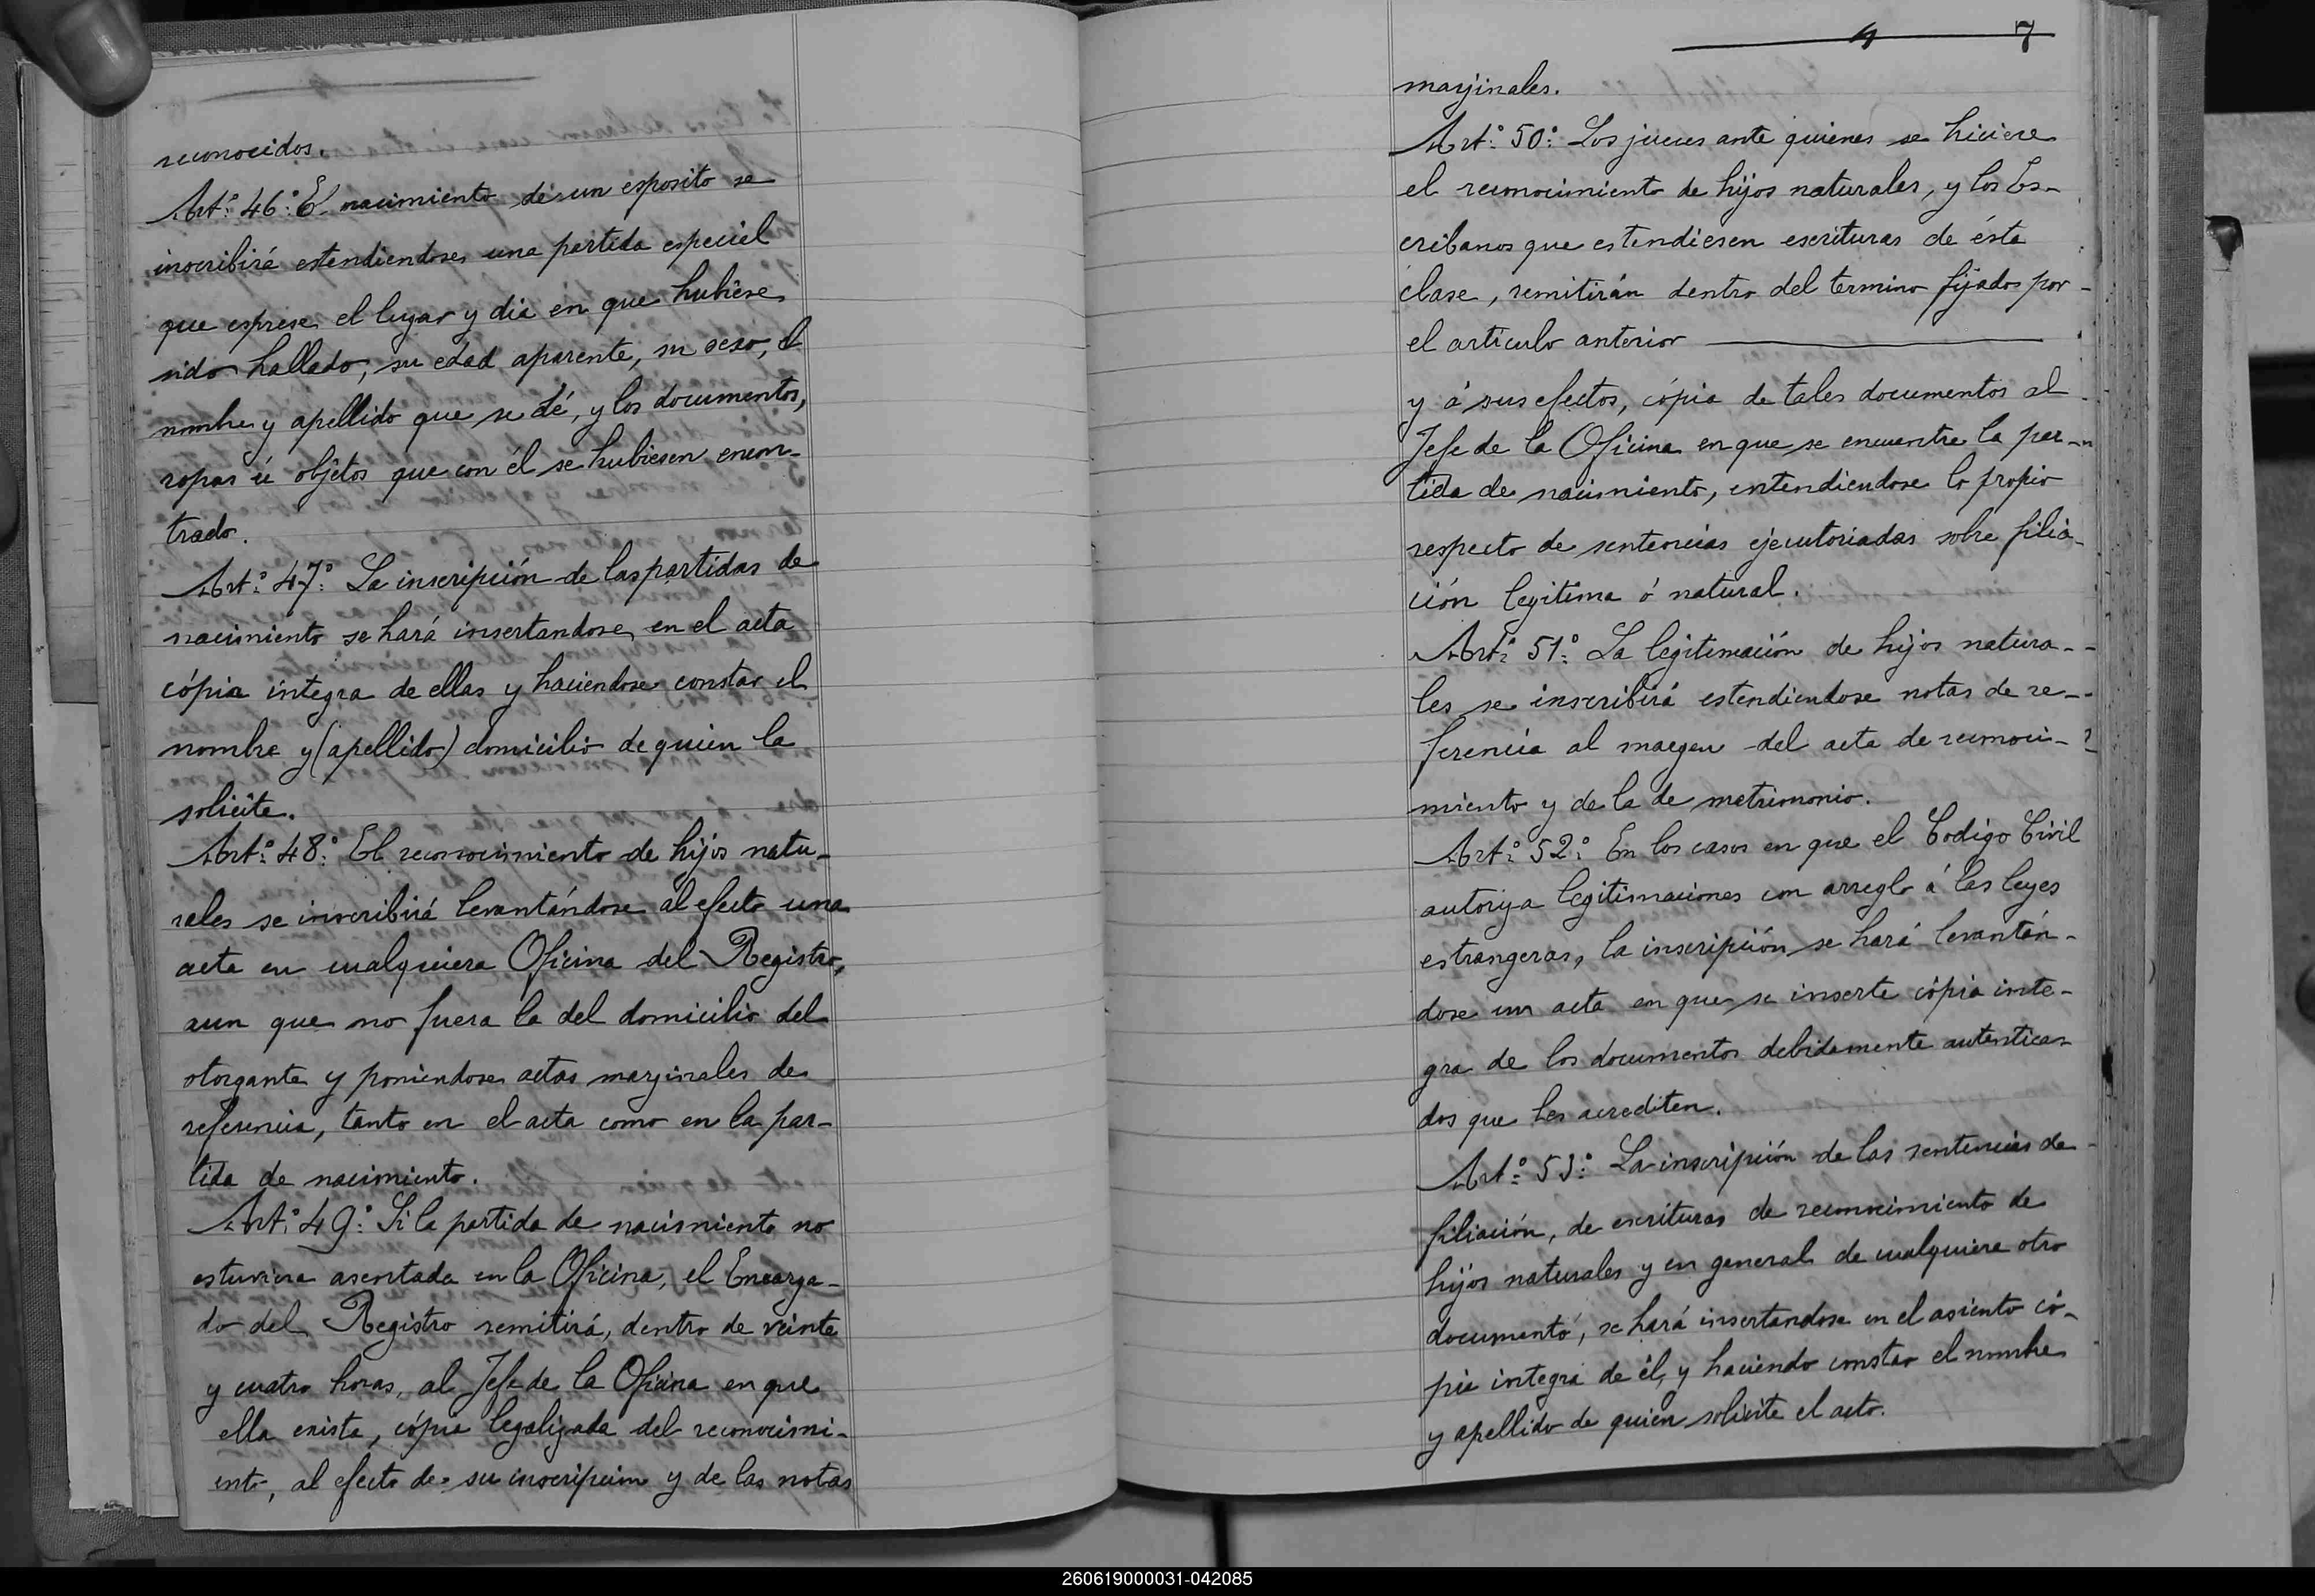 reconocidos.
Art.º 46º: El nacimiento de un esposito se
inscribirá estendiendose una partida especial
que esprese el lugar y dia en que hubiese
sido hallado, su edad aparente, su sexo, el
nombre y apellido que se dé, y los documentos,
ropas ú objetos que con él se hubiesen encon-
trado.
Art.º 47º: La inscripción de las partidas de
nacimiento se hará insertandose en el acta
cópia integra de ellas y haciendose constar el
nombre y (apellido) domicilio de quien la
solicite.
Art.º 48º: El reconocimiento de hijos natu-
rales se inscribirá levantándose al efecto una
acta en cualquiera Oficina del Registro,
aun que no fuera la del domicilio del
otorgante y poniendose actas marginales de
referencia, tanto en el acta como en la par-
tida de nacimiento.
Art.º 49º: Si la partida de nacimiento no
estuviera asentada en la Oficina, el Encarga-
do del Registro remitirá, dentro de veinte
y cuatro horas, al Jefe de la Oficina en que
ella exista, cópia legalizada del reconocimi-
ento, al efecto de su inscripcion y de las notas
7
marjinales.
Art.º 50º: Los jueces ante quienes se hiciere
el reconocimiento de hijos naturales, y los Es-
cribanos que estendiesen escrituras de ésta
clase, remitirán dentro del termino fijados por
el articulo anterior
y á sus efectos, cópia de tales documentos al
Jefe de la Oficina en que se encuentre la par-
tida de nacimiento, entendiendose lo propio
respecto de sentencias ejecutoriadas sobre filia-
ción legitima ó natural.
Art.º 51º: La legitimación de hijos natura-
les se inscribirá estendiendose notas de re-
ferencia al margen del acta de reconoci-
miento y de la de matrimonio.
Art.º 52º: En los casos en que el Codigo Civil
autoriza legitimaciones con arreglo á las leyes
estrangeras, la inscripción se hará levantán-
dose un acta en que se inserte cópia inte-
gra de los documentos debidamente autentica-
dos que les acrediten.
Art.º 53º: La inscripción de las sentencias de
filiación, de escrituras de reconocimiento de
hijos naturales y en general de cualquiera otro
documento, se hará insertandose en el asiento có-
pia integra de él, y haciendo constar el nombre
y apellido de quien solicite el acto.
260619000031-042085